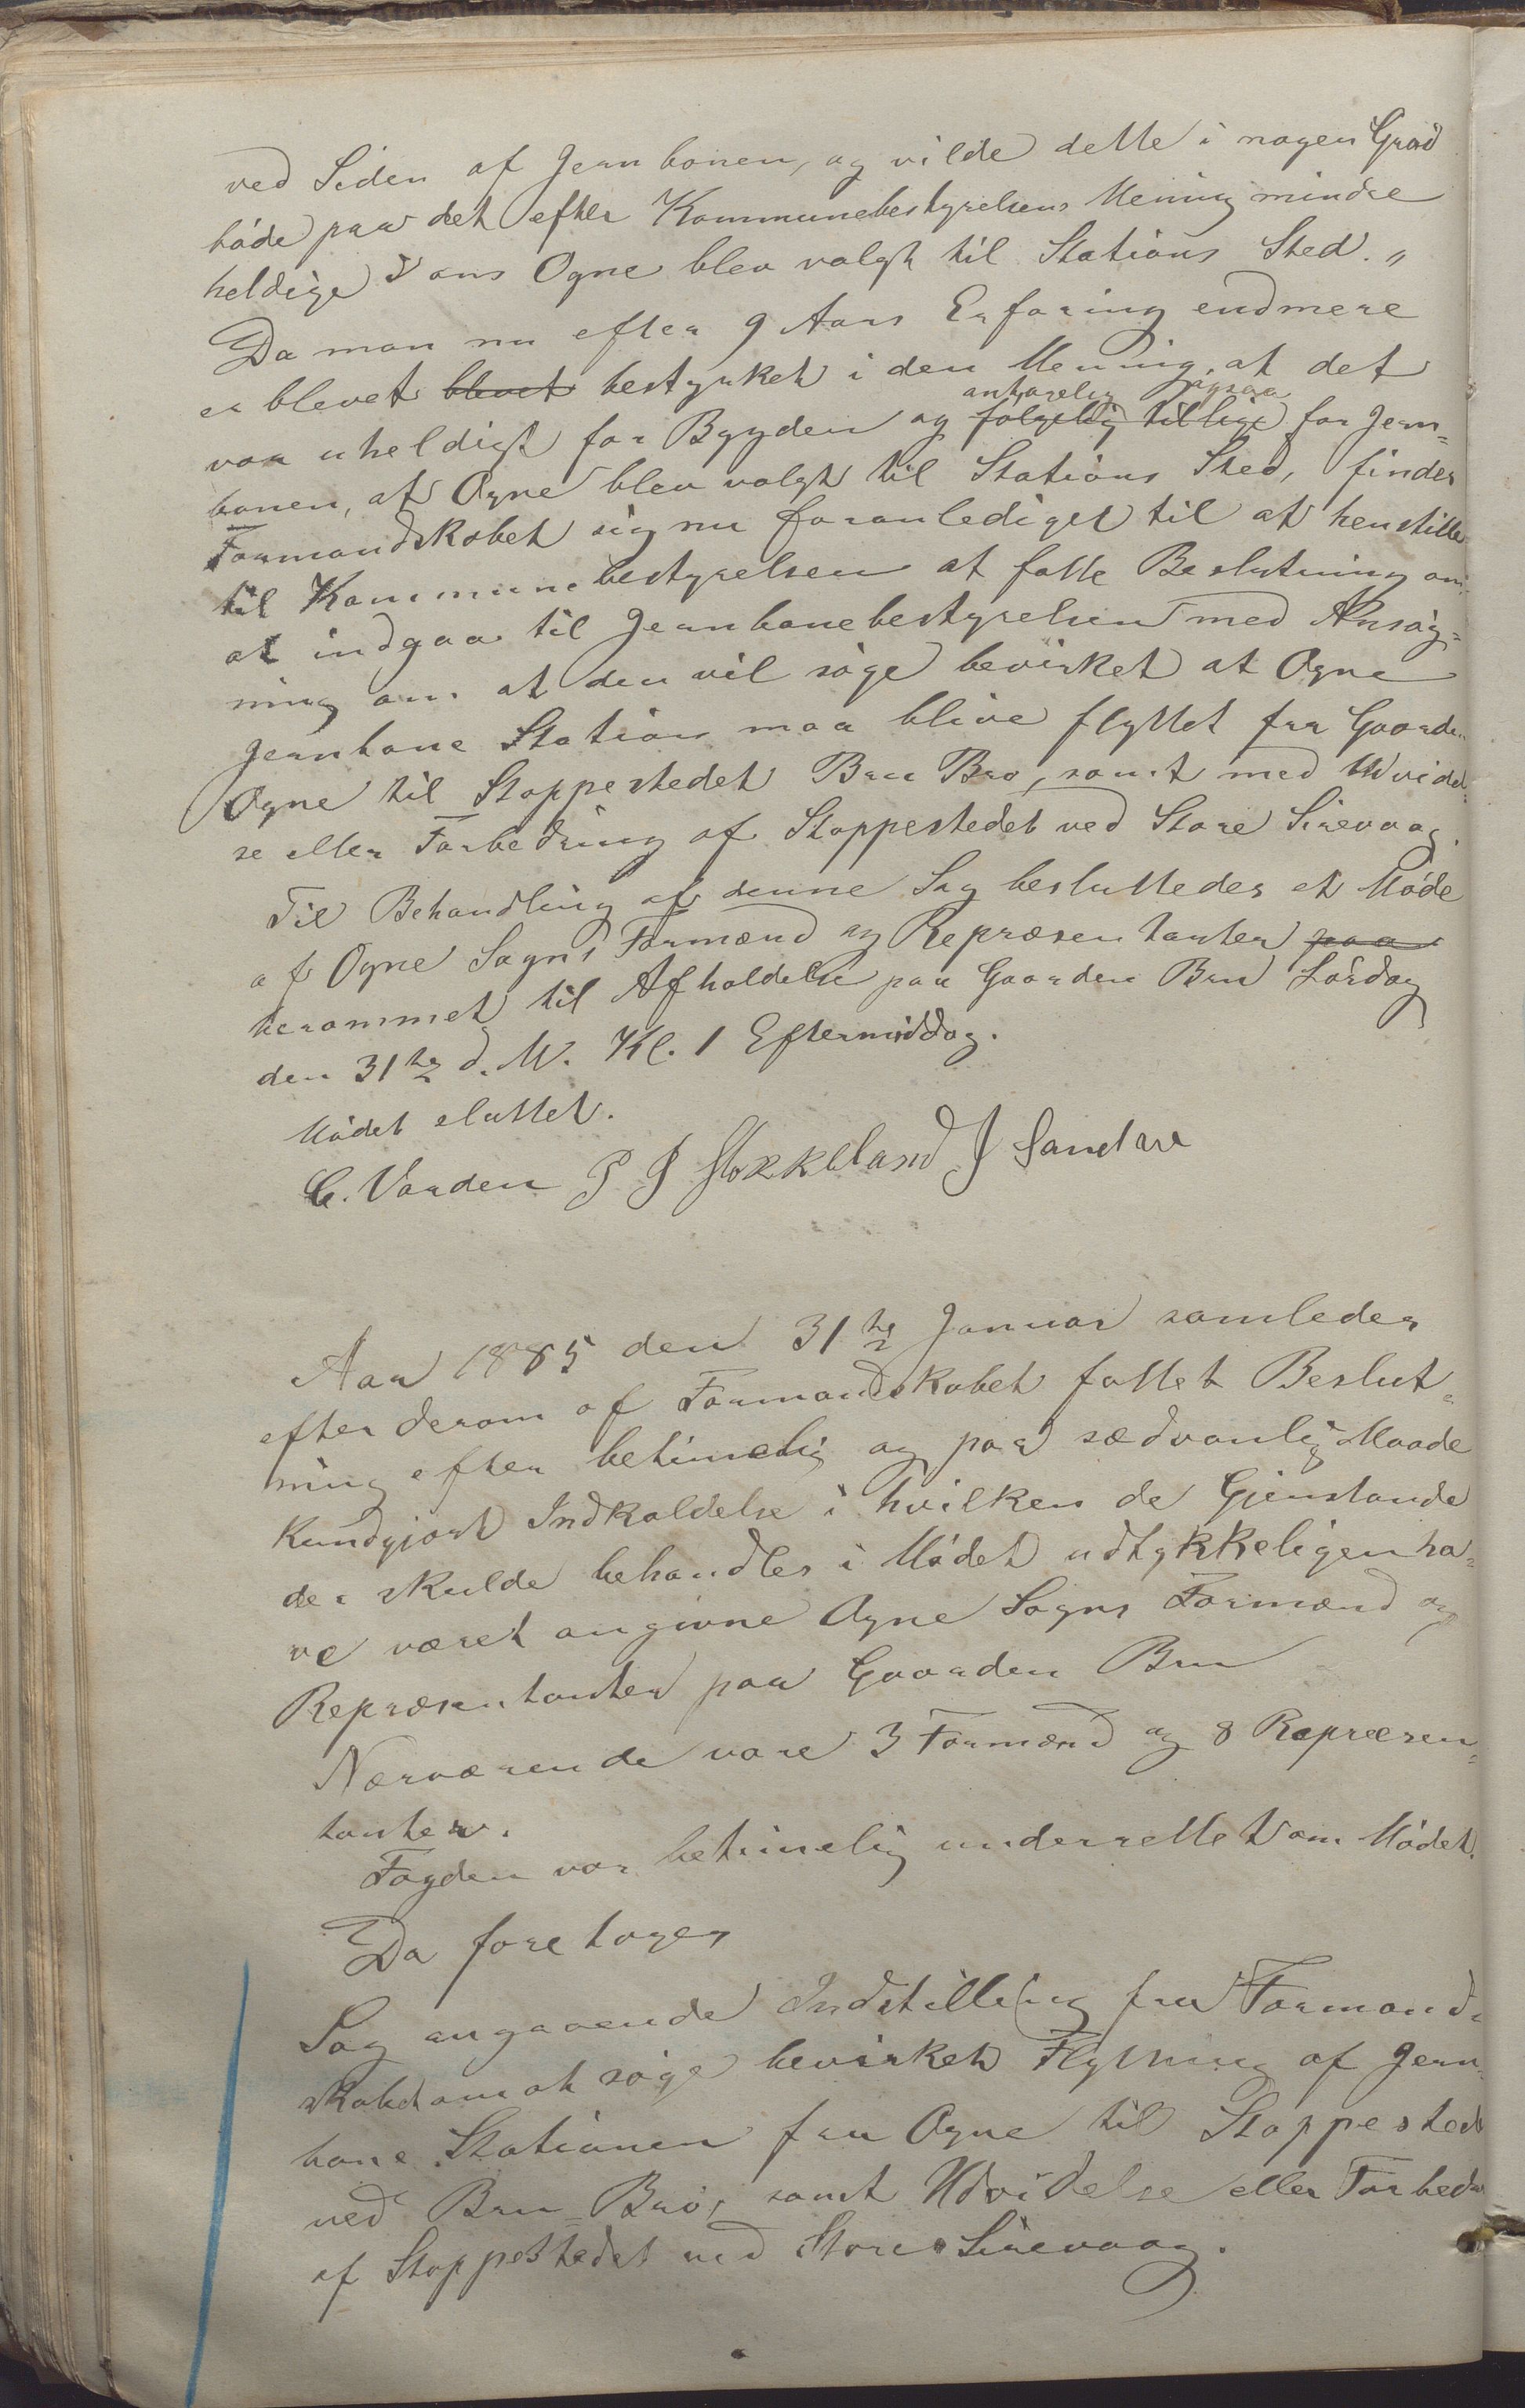 ved Siden af Jernbanen, og vilde dette i nogen Grad
bøde paa det efter Kommunebestyrelsens Mening mindre
heldige i om Ogne blev valgt til Stations Sted."
Da man nu efter 9 Aars Erfaring endmere
er blevet blevet bestyrket i den Mening, at det
antagelig ogsaa
var uheldigt for Bygden og følgelig tillige for Jern=
banen, at Ogne blev valgt til Stations Sted, finder
Formandskabet sig nu foranlediget til at henstille
til Kommunebestyrelsen at fatte Beslutning om
at indgaa til Jernbanebestyrelsen med Ansøg=
ning om at den vil søge bevirket at Ogne
Jernbane Station maa blive flyttet fra Gaarden
Ogne til Stoppestedet Bru Bro, samt med Udvidel=
se eller Forbedring af Stoppestedet ved Store Sirevaag.
Til Behandling af denne Sag besluttedes et Møde
af Ogne Sogns Formænd og Repræsentanter paa
berammet til Afholdelse paa Gaarden Bru Lørdag
den 31te d. M. Kl. 1 Eftermiddag.
Mødet sluttet.
C. Varden P J Stokkeland J Sandve
Aar 1885 den 31te Januar samledes
efter derom af Formandskabet fattet Beslut=
ning efter betimelig og paa sædvanlig Maade
kundgjort Indkaldelse i hvilken de Gjenstande
der skulde behandles i Mødet udtykkeligen ha=
ve været angivne Ogne Sogns Formænd og
Repræsentanter paa Gaarden Bru
Nærværende vare 3 Formænd og 8 Repræsen=
tanter.
Fogden var betimelig underrettet om Mødet.
Da foretoges
Sag angaaende Indstilling fra Formand=
skabet om at søge bevirket Flytning af Jern=
bane Stationen fra Ogne til Stoppestedet
ved Bru=Bro, samt Udvidelse eller Forbedr
af Stoppestedet ved Store Sirevaag.